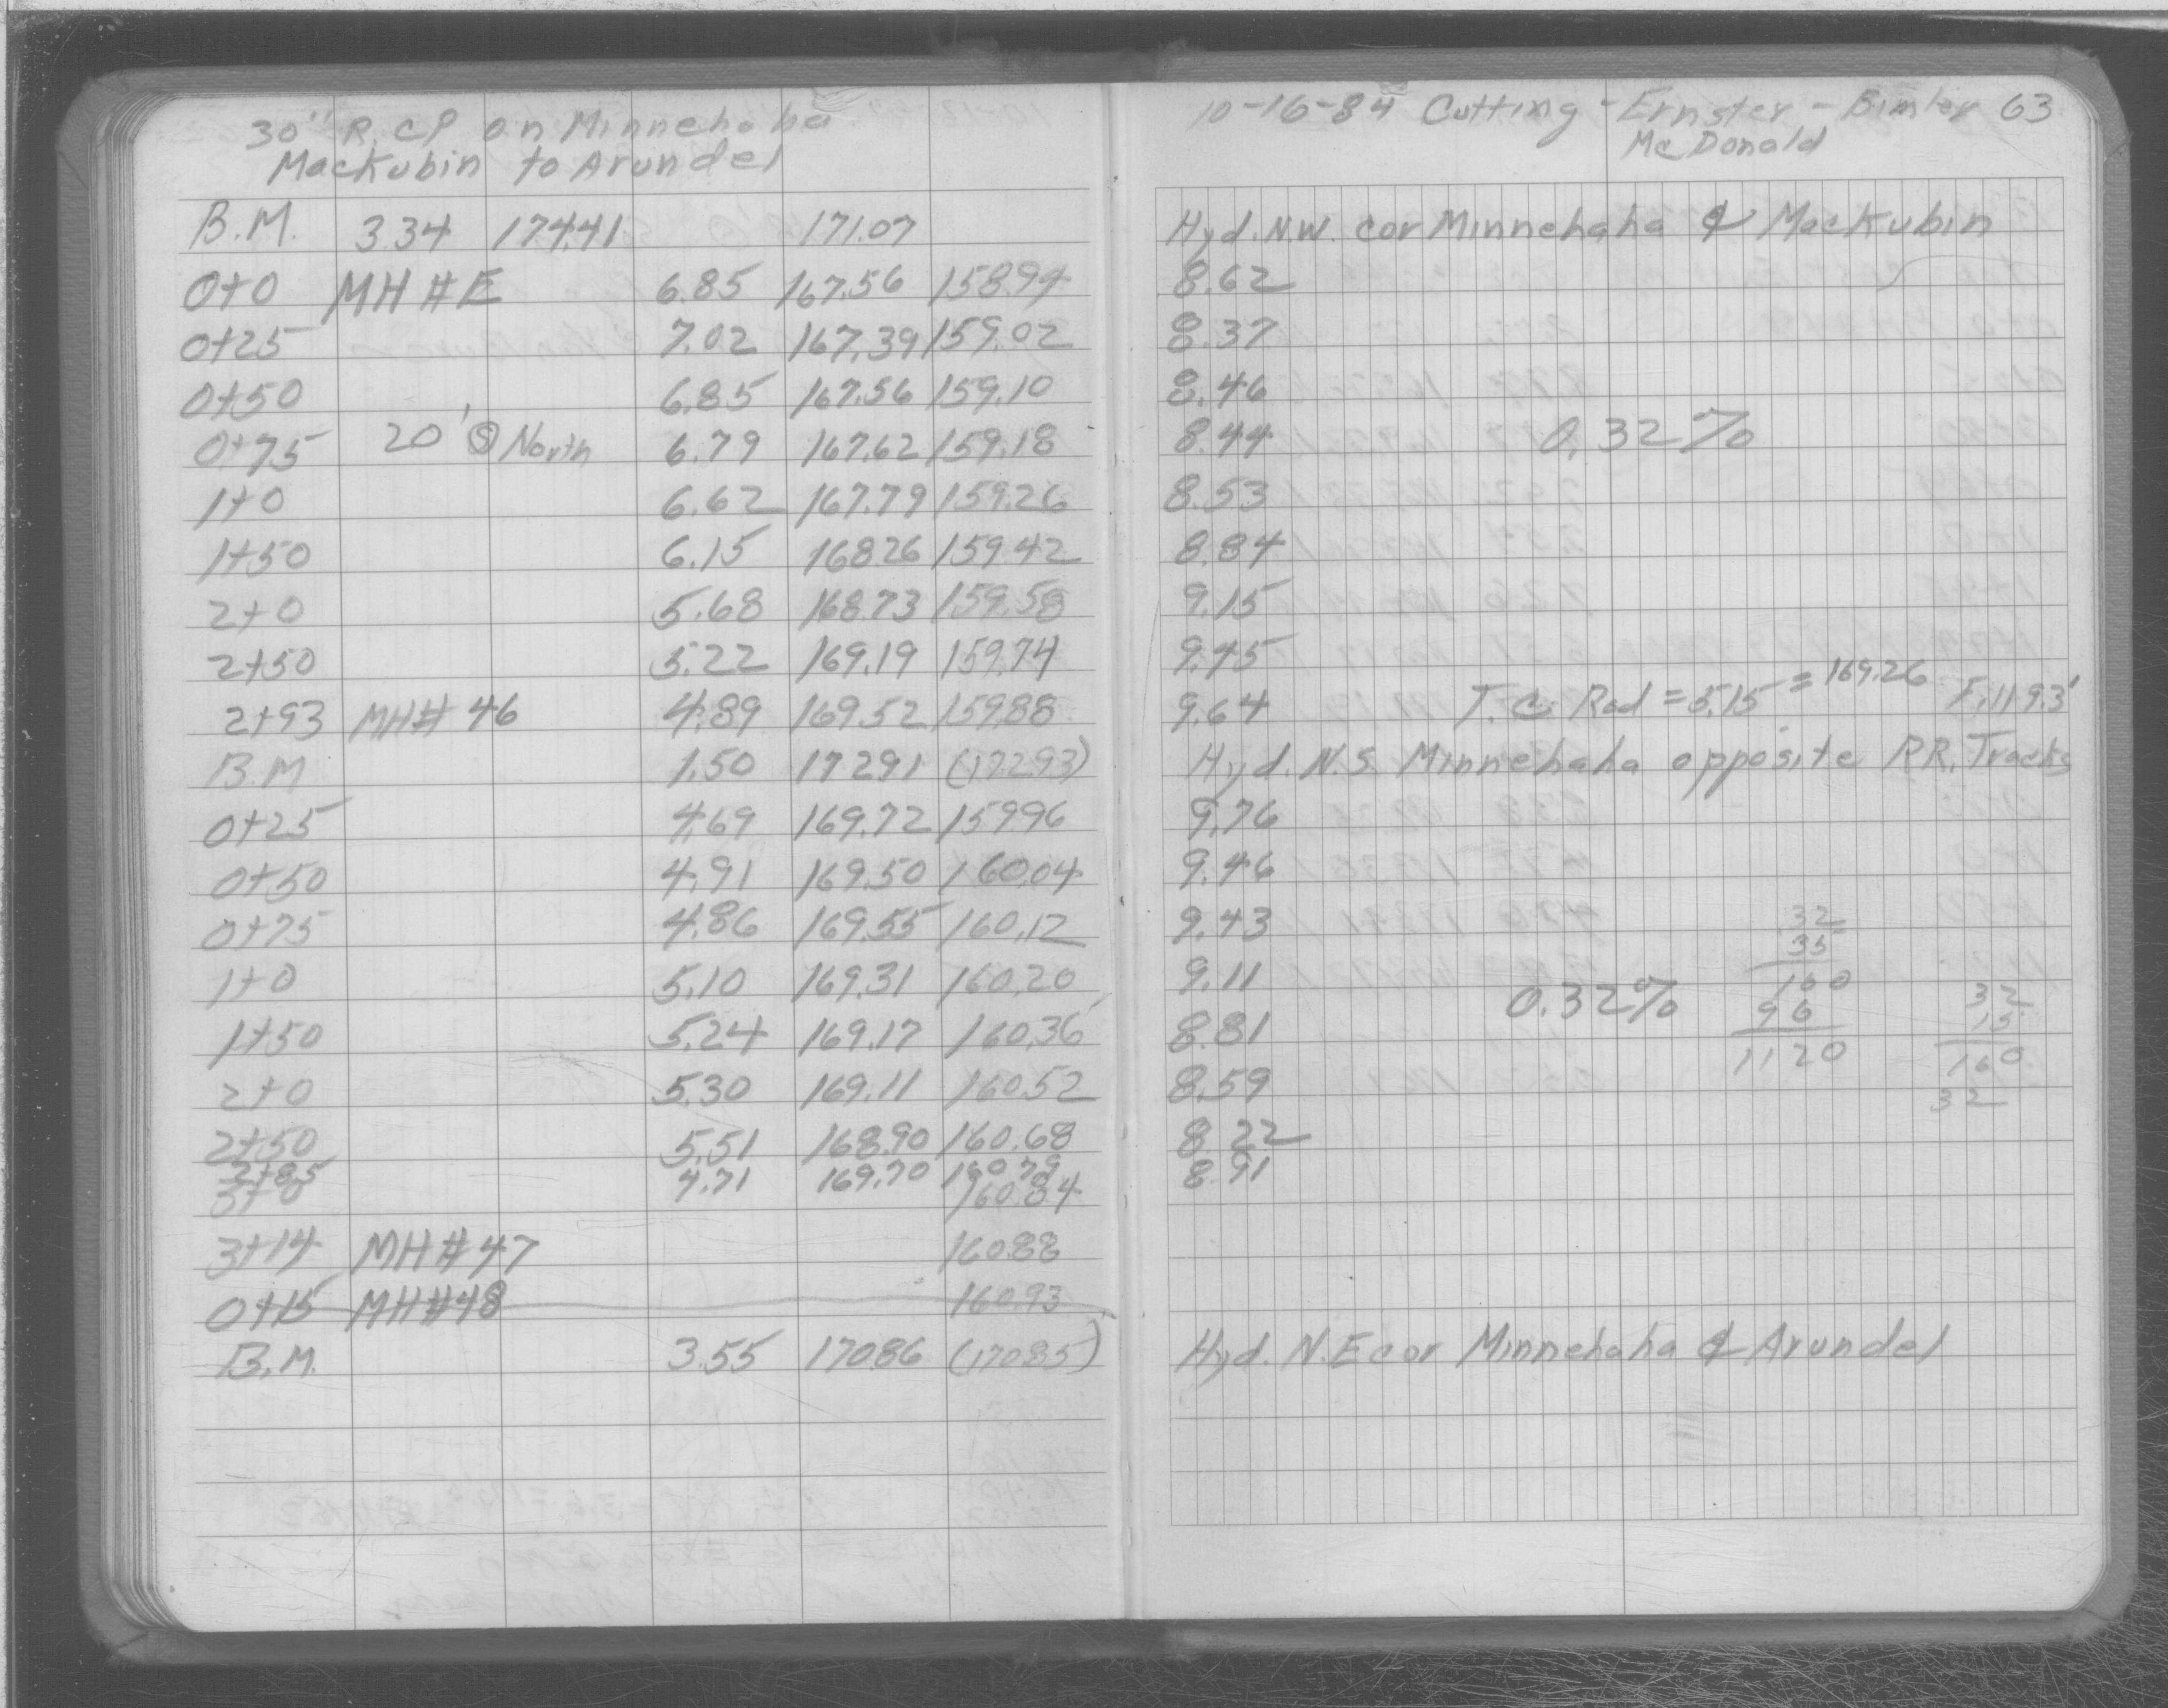 30" R.C.P. on Minnehaha
Mackubin to Arundel
B.M. 334 174.41 171.07
0+0 MH#E 6.85 167.56 158.94
0+25 7.02 167.39 159.02
0+50 6.85 167.56 159.10
0+75 20' North 6.79 167.62 159.18
1+0 6.62 167.79 159.26
1+50 6.15 168.26 159.42
2+0 5.68 168.73 159.58
2+50 5.22 169.19 159.74
2+93 MH#46 4.89 169.52 159.88
B.M 1.50 172.91 (172.93)
0+25 4.69 169.72 159.96
0+50 4.91 169.50 160.04
0+75 4.86 169.55 160.12
1+0 5.10 169.31 160.20
1+50 5.24 169.17 160.36
2+0 5.30 169.11 160.52
2+50 5.51 168.90 160.68
2+85 4.71 169.70 160.79
3+0 160.84
3+14 MH#47 160.88
0+15 MH#48 160.93
B.M. 3.55 170.86 (170.85)
10-16-84 Cutting - Ernster - Bimler 63
McDonald
Hyd. N.W. cor Minnehaha & Mackubin
8.62
8.37
8.46
8.44 0.32%
8.53
8.84
9.15
9.45
9.64 T.C. Rod = 5.15 = 169.26
Hyd. N.S. Minnehaha opposite R.R. Tracks
9.76
9.46
9.43
9.11 0.32%
8.81
8.59
8.22
8.91
32
35
160
96
1120
32
15
160
32
Hyd. N.E cor Minnehaha & Arundel